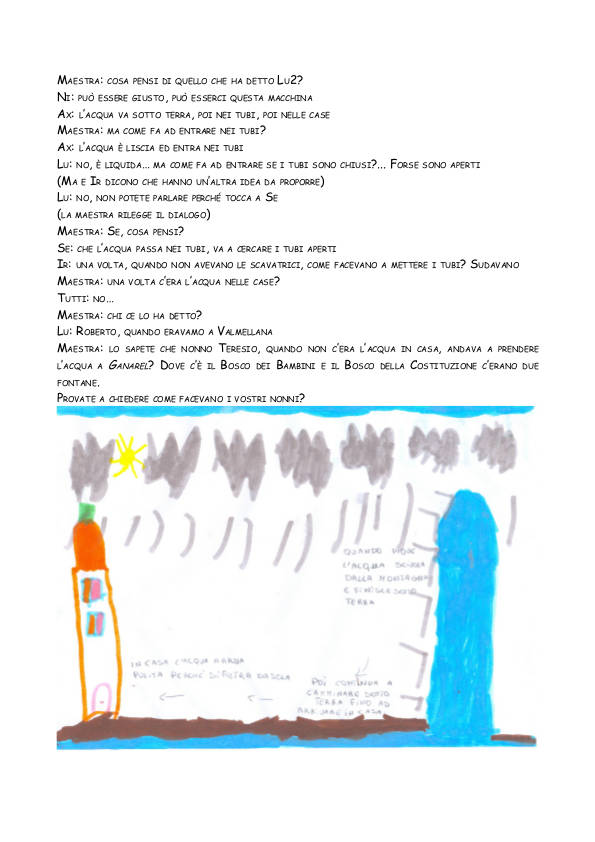 Maestra: cosa pensi di quello che ha detto Lu2?
Ni: può essere giusto, può esserci questa macchina
Ax: l'acqua va sotto terra, poi nei tubi, poi nelle case
Maestra: ma come fa ad entrare nei tubi?
Ax: l'acqua è liscia ed entra nei tubi
Lu: no, è liquida... ma come fa ad entrare se i tubi sono chiusi?... Forse sono aperti
(Ma e Ir dicono che hanno un'altra idea da proporre)
Lu: no, non potete parlare perché tocca a Se
(la maestra rilegge il dialogo)
Maestra: Se, cosa pensi?
Se: che l'acqua passa nei tubi, va a cercare i tubi aperti
Ir: una volta, quando non avevano le scavatrici, come facevano a mettere i tubi? Sudavano
Maestra: una volta c'era l'acqua nelle case?
Tutti: no...
Maestra: chi ce lo ha detto?
Lu: Roberto, quando eravamo a Valmellana
Maestra: lo sapete che nonno Teresio, quando non c'era l'acqua in casa, andava a prendere
l'acqua a Ganarel? Dove c'è il Bosco dei Bambini e il Bosco della Costituzione c'erano due
fontane.
Provate a chiedere come facevano i vostri nonni?
QUANDO PIOVE
L'ACQUA SCIVOLA
DALLA MONTAGNA
E FINISCE SOTTO
TERRA
IN CASA L'ACQUA ARRIVA
PULITA PERCHÉ
POI CONTINUA A
CAMMINARE SOTTO
TERRA FINO AD
ARRIVARE IN CASA